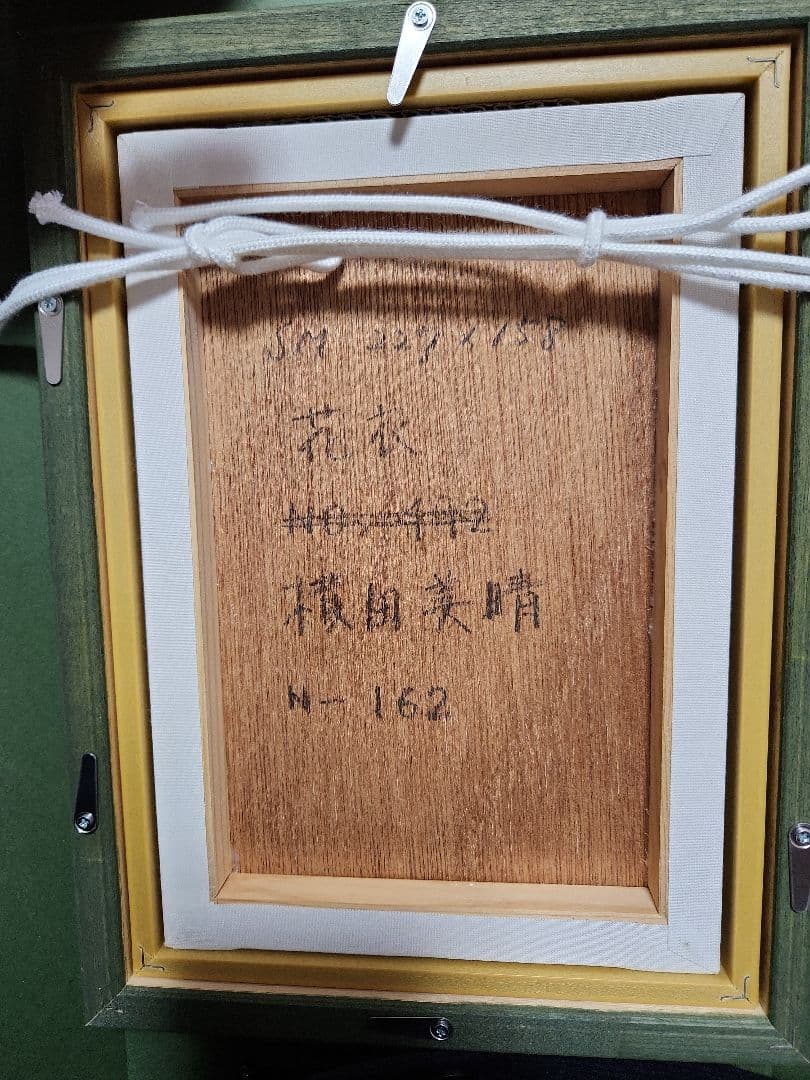 SM 227×158
花衣
NO,-442
横田美晴
N-162